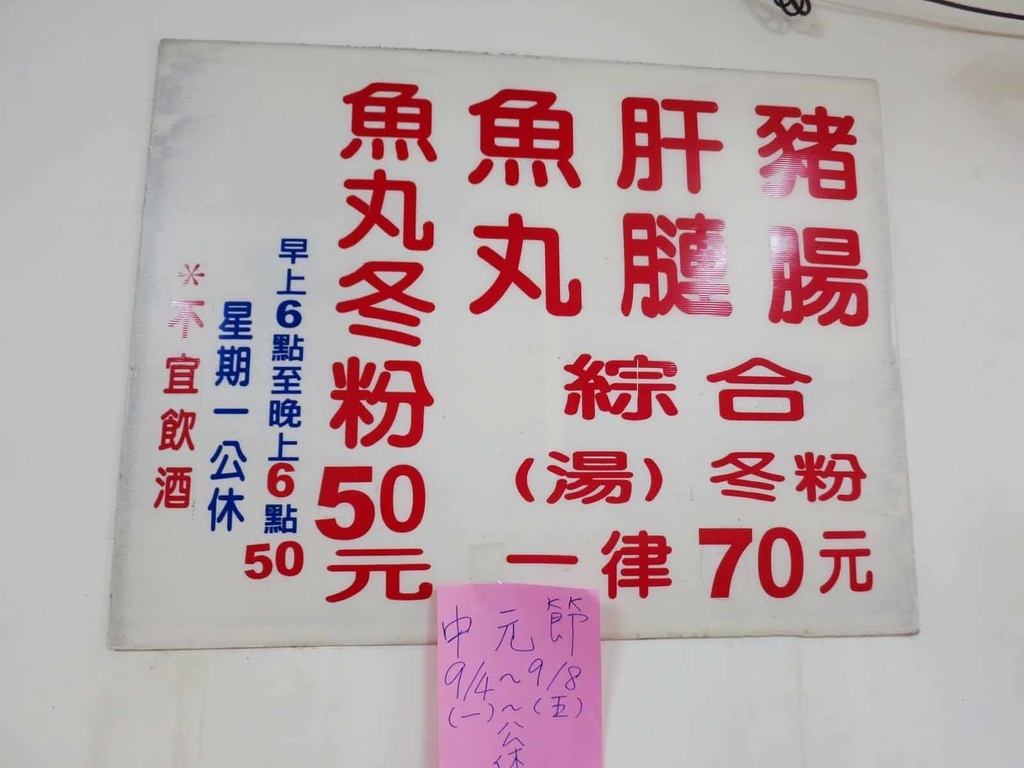 豬腸
肝
魚丸
綜合
(湯) 冬粉
一律70元
魚丸冬粉50元
早上6點至晚上6點50
星期一公休
*不宜飲酒
中元節
9/4~9/8
(一)~(五)
公休